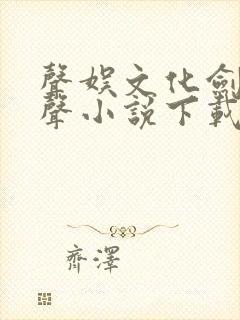 聲娛文化劍
聲小說下載
齊澤